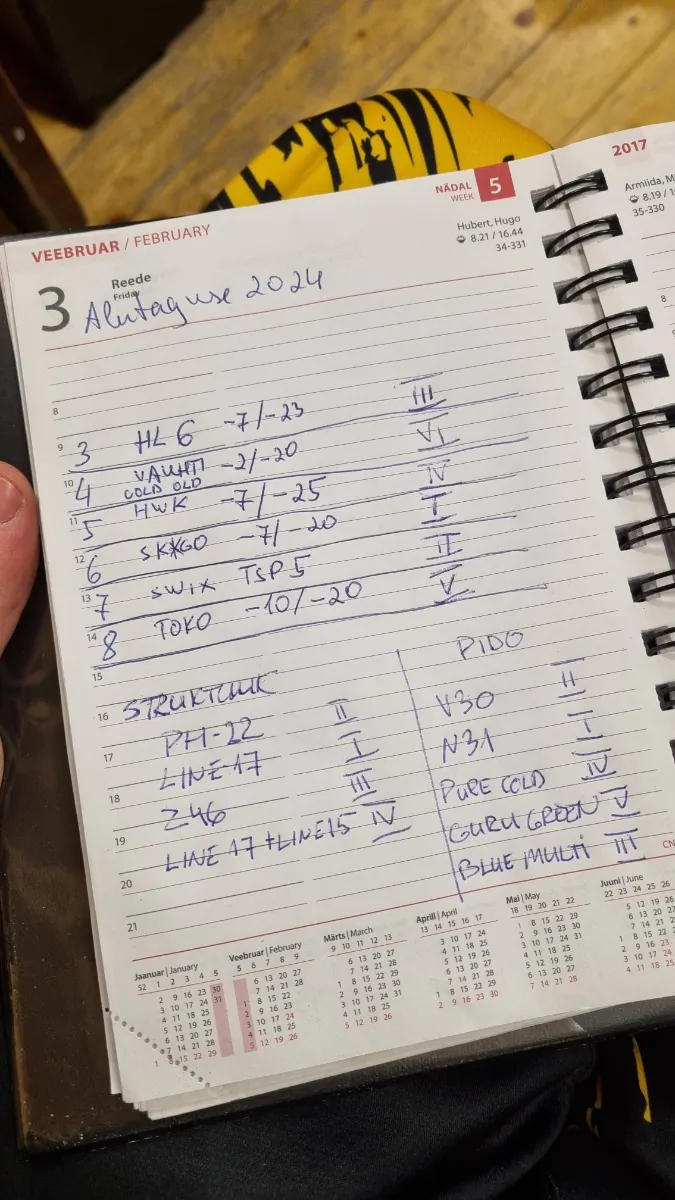 2017
NÄDAL
WEEK
5
VEEBRUAR / FEBRUARY
Hubert, Hugo
8.21 / 16.44
34-331
Armiida, M
8.19 / 1
35-330
3
Reede
Friday
Alutaguse 2024
8
9 3 HL 6 -7/-23 III
10 4 VAUHTI COLD OLD -2/-20 VI
11 5 HWK -7/-25 IV
12 6 SKIGO -7/-20 I
13 7 SWIX TSP5 II
14 8 TOKO -10/-20 V
15
16 STRUKTUUR
17 PH-22 II
18 LINE 17 I
19 Z46 III
20 LINE 17 + LINE 15 IV
21
PIDO
V30 II
N31 I
PURE COLD IV
GURU GREEN V
BLUE MULTI III
8
CN
Jaanuar | January
52 1 2 3 4 5
2 9 16 23 30
3 10 17 24 31
4 11 18 25
5 12 19 26
6 13 20 27
7 14 21 28
1 8 15 22 29
Veebruar | February
5 6 7 8 9
6 13 20 27
7 14 21 28
1 8 15 22
2 9 16 23
3 10 17 24
4 11 18 25
5 12 19 26
Märts | March
9 10 11 12 13
6 13 20 27
7 14 21 28
1 8 15 22 29
2 9 16 23 30
3 10 17 24 31
4 11 18 25
5 12 19 26
Aprill | April
13 14 15 16 17
3 10 17 24
4 11 18 25
5 12 19 26
6 13 20 27
7 14 21 28
1 8 15 22 29
2 9 16 23 30
Mai | May
18 19 20 21 22
1 8 15 22 29
2 9 16 23 30
3 10 17 24 31
4 11 18 25
5 12 19 26
6 13 20 27
7 14 21 28
Juuni | June
22 23 24 25 26
5 12 19 26
6 13 20 27
7 14 21 28
1 8 15 22
2 9 16 23
3 10 17 24
4 11 18 25